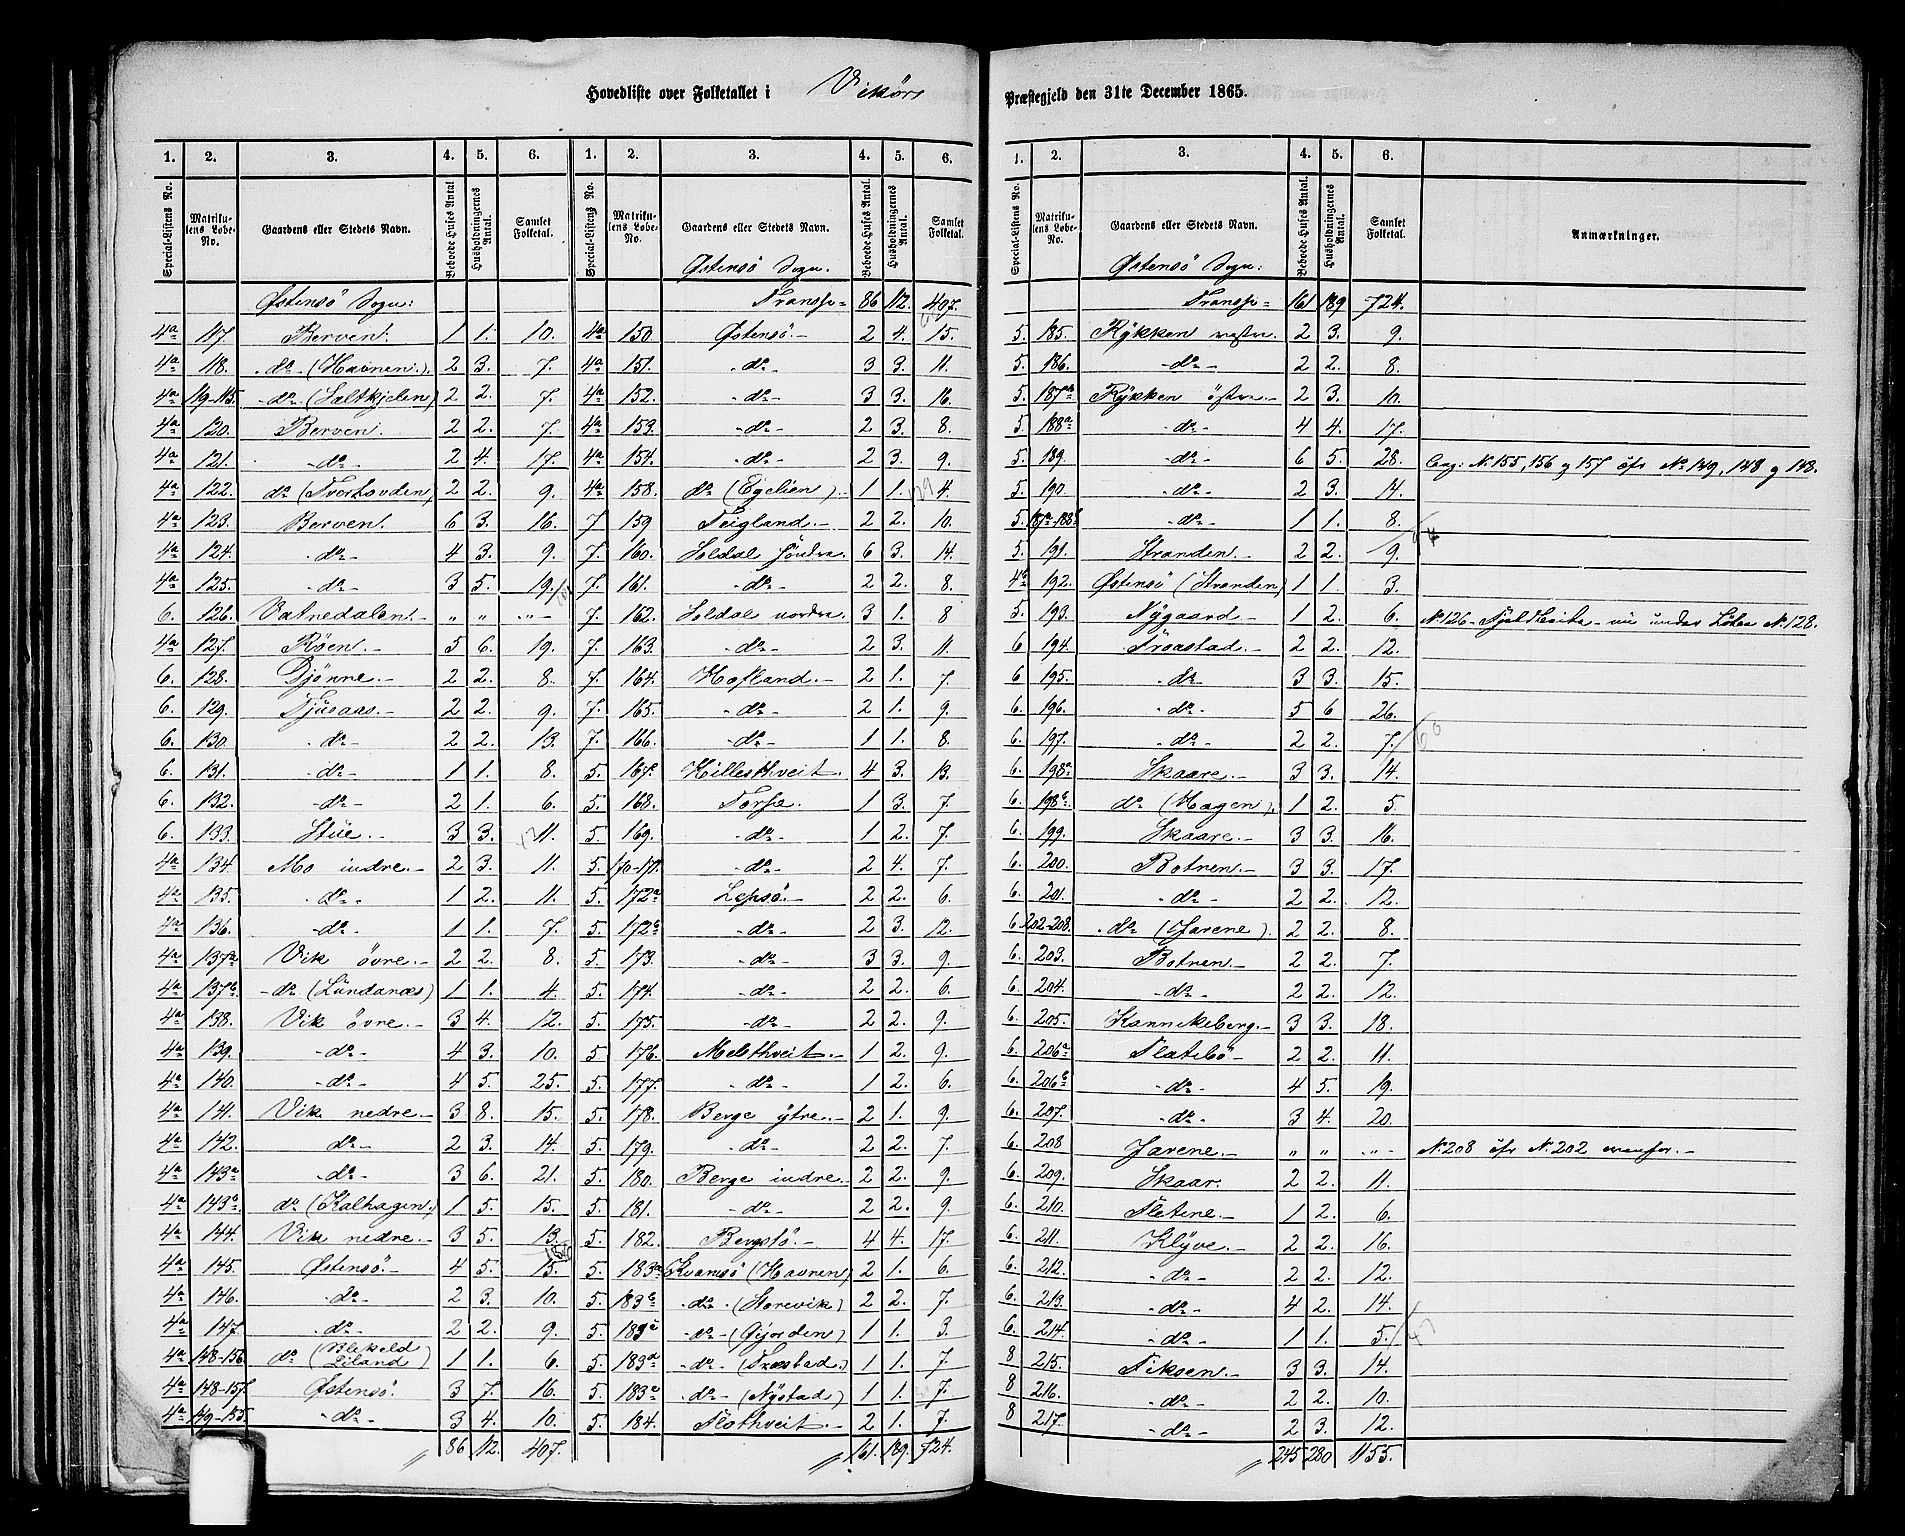 Hovedliste over Folketallet i Vikörs Præstegjeld den 31te December 1865.
1. 2. 3. 4. 5. 6. 1. 2. 3. 4. 5. 6.
Special-Listens No. Matrikulens Løbe-No. Gaardens eller Stedets Navn. Beboede Huses Antal Husholdningernes Antal. Samlet Folketal. Special-Listens No. Matrikulens Løbe-No. Gaardens eller Stedets Navn. Beboede Huses Antal. Husholdningernes Antal. Samlet Folketal.
Østensö Sogn:
4a 117. Berven. 1 1. 10.
4a 118. do (Havnen.) 2 3. 7.
4a 119-115. do (Saltkjelen) 2 2. 7.
4a 120. Berven. 2 2. 7.
4a 121. do 2 4. 17.
4a 122. do (Tvorhovden) 2 2. 9.
4a 123. Berven. 6 3. 16.
4a 124. do 4 3. 9.
4a 125. do 3 5. 19.
6. 126. Vatnedalen. " " "
4a 127. Röen. 5 6. 19.
6. 128. Djönne. 2 2. 8.
6. 129. Tjusaas. 2 2. 9.
6. 130. do 2 2. 13.
6. 131. do 1 1. 8.
6. 132. do 2 1. 6.
6. 133. Stue. 3 3. 11.
4a 134. Mo indre. 2 3. 11.
4a 135. do 1 2. 11.
4a 136. do 1 1. 7.
4a 137a Vik övre. 2 2. 8.
4a 137b do (Lundanæs) 1 1. 4.
4a 138. Vik övre. 3 4. 12.
4a 139. do 4 3. 10.
4a 140. do 4 5. 25.
4a 141. Vik nedre. 3 8. 15.
4a 142. do 2 3. 14.
4a 143a do 3 6. 21.
4a 143b do (Kalhagen.) 1 5. 15.
4a 144. Vik nedre. 3 5. 13.
4a 145. Østensö. 4 5. 15.
4a 146. do 2 3. 10.
4a 147. do 2 2. 9.
4a 148-156. do (Blekeld Liland) 1 1. 6.
4a 148-157. Østensö. 3 7. 16.
4a 149-155. do 3 4. 10.
86 112. 407.
Østensö Sogn.
Transp. 86 112. 407.
4a 150 Østensö. 2 4. 15.
4a 151. do 3 3. 11.
4a 152. do 3 3. 16.
4a 153. do 2 3. 8.
4a 154. do 2 3. 9.
4a 158. do (Egelien) 1 1. 4.
7 159 Teigland. 2 2. 10.
7. 160. Soldal söndre. 6 3. 14.
7. 161. do 2 2. 8.
7. 162. Soldal nordre. 3 1. 8
7. 163. do 2 3. 11.
7. 164. Hofland. 2 1. 7.
7. 165. do 2 1. 9.
7. 166. do 1 1. 8.
5. 167. Killesthveit. 4 3. 13.
5. 168. Torpe. 1 3. 7.
5. 169. do 1 2. 7.
5. 170-171. do 2 4. 7.
5. 172a Lepsö. 2 2. 6.
5. 172b do 2 3. 12.
5. 173. do 3 3. 9.
5. 174. do 2 2. 6.
5. 175. do 2 2. 9.
5 176. Melsthveit. 1 2. 9.
5. 177. do 1 2. 6.
5. 178. Berge ytre. 2 1. 9.
5. 179. do 2 2. 7.
5. 180. Berge indre. 2 2. 9.
5. 181. do 2 2. 9.
5. 182. Bergstö. 4 4. 17.
5. 183a Kvamsö (Havnen) 2 1. 6.
5. 183b do (Storevik) 2 2. 7.
5. 183c do (Gjorden) 1 1. 3.
5. 183d do (Træstad.) 1 1. 7.
5. 183e do (Nystad) 1 1. 7.
5. 184. Flothveit. 2 1. 7.
161. 189. 724.
1. 2. 3. 4. 5. 6.
Special-Listens No. Matrikulens Løbe-No. Gaardens eller Stedets Navn. Beboede Huses Antal. Husholdningernes Antal. Samlet Folketal. Anmærkninger.
Østensö Sogn:
Transp. 161 189 724.
5. 185. Rykken vestre. 2 3. 9.
5. 186. do 2 2. 8.
5. 187b Rykken östre. 2 3. 10.
5. 188a do 4 4. 17.
5. 189. do 6 5. 28. Ang: N. 155, 156 og 157 cfr No 149, 148 og 148.
5. 190. do 2 3. 14.
5. 187a-188b do 1 1. 8.
5 191. Stranden. 2 2. 9.
4b 192. Østensö (Stranden) 1 1. 3.
5. 193. Nygaard. 1 2. 6. No 126 - Fjeldbeite - nu under Löbe N. 128.
6 194. Froastad. 2 2. 12.
6 195. do 3 3. 15.
6. 196. do 5 6 26.
6. 197. do 2 2. 7.
6. 198a Skaare. 3 3. 14.
6. 198b do (Hagen). 1 2. 5.
6. 199. Skaare. 3 3. 16.
6. 200. Botnen. 3 3. 17.
6. 201. do 2 2. 12.
6. 202-208. do (Jarene). 2 2. 8.
6. 203. Botnen. 2 2. 7.
6. 204. do 2 2. 12.
6. 205. Kannikeberg. 3 3. 18.
6. 206a Flatebö 2 2. 11.
6. 206b do 4 5. 19.
6. 207. do 3 4. 20.
6. 208 Jarene. " " " N. 208 cfr N. 202 ovenfor.
6. 209. Skaar. 2 2. 11.
6. 210. Fletene. 1 2. 6.
6. 211. Klyve. 2 2. 16.
6. 212. do 2 2. 12.
6. 213. do 4 2. 14.
6. 214. do 1 1. 5.
8 215. Tiksen. 3 3. 14.
8 216. do 2 2. 10.
8 217. do 2 3. 12.
245 280 1155.